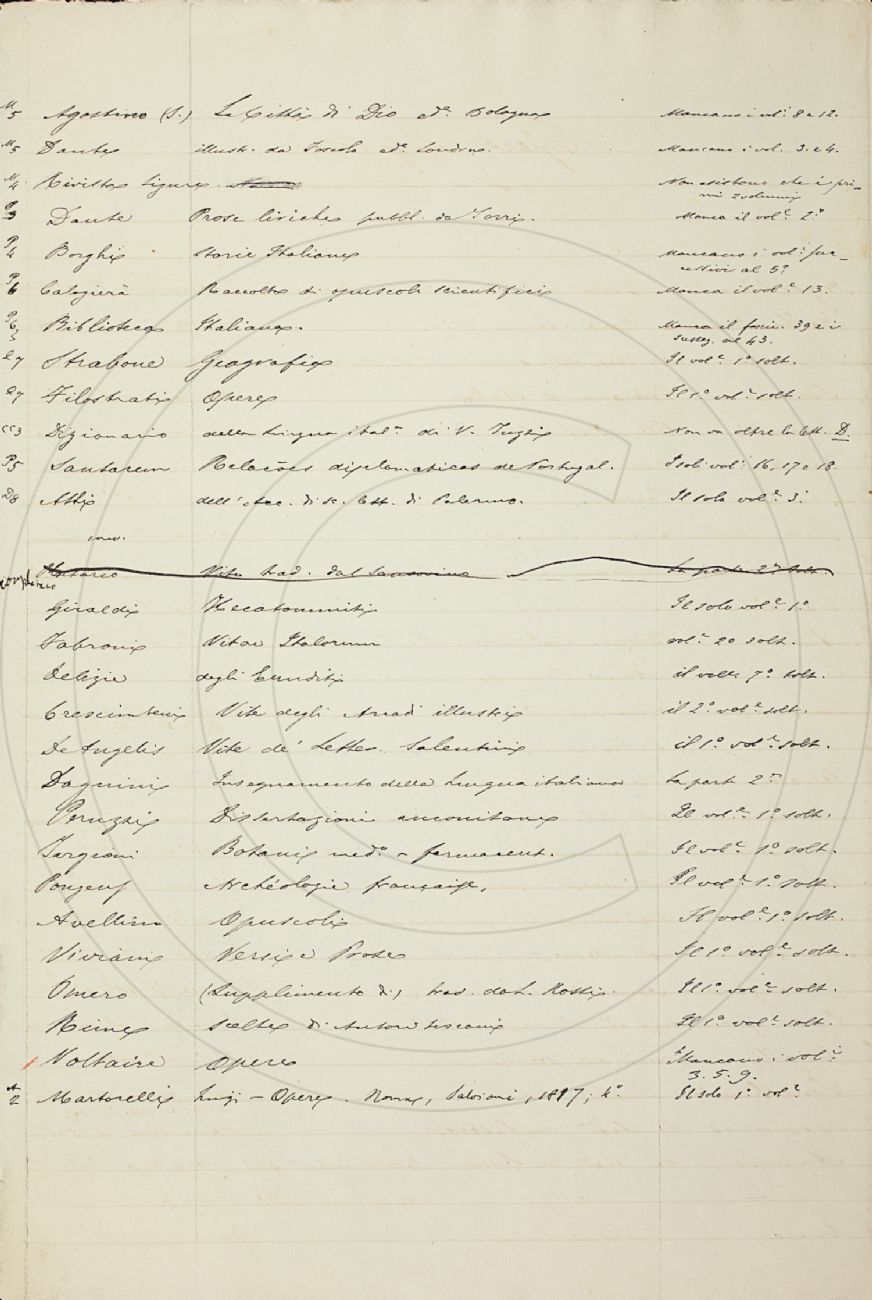 M 5 Agostino (S.) La Città di Dio ed.e Bologna Mancano i vol.i 8 e 12.
M 5 Dante illustr. da Foscolo ed.e Londra Mancano i vol. 3. e 4.
M 4 Rivista Ligure. Non esistono che i pri-
mi 2 volumi
P 3 Dante Prose liriche pubbl. da Torri. Manca il vol.e 2.o
P 4 Borghi Storie Italiane Mancano i vol.i
al 5.o
P 6 Calogierà Raccolta di opuscoli scientifici Manca il vol.e 13.
P 6 Biblioteca Italiana. Manca il fascic. 39 e i
susseg. al 43.
Q 7 Strabone Geografia Il vol.e 1.o solt.
Q 7 Filostrati Opere Il 1.o vol.e solt.
CC 3 Dizionario della Lingua ital.a di V. Non va oltre la lett. D.
P 5 Santarem Relações diplomaticas de Portugal. I soli vol.i 16, 17 e 18.
D 8 Atti dell'Acc. di sc. lett. di Palermo. Il solo vol.e 3.o
Plutarco Vite trad. dal Sansovino La parte 2.a solt.
Giraldi Hecatommiti Il solo vol.e 1.o
Fabroni Vitae Italorum vol.e 20 solt.
Delizie degli Eruditi il vol.e 7.o solt.
Crescimbeni Vite degli Arcadi illustri il 2.o vol.e solt.
De Angelis Vite de' Letter. Salentini il 1.o vol.e solt.
Dagnini Insegnamento della Lingua italiana La parte 2.a
Peruzzi Dissertazioni anconitane Il vol.e 1.o solt.
Targioni Botanic med.o farmaceut. Il vol.e 1.o solt.
Pougens Archéologie française, Il vol.e 1.o solt.
Avellino Opuscoli Il vol.e 1.o solt.
Viviani Versi e Prose Il 1.o vol.e solt.
Omero (Supplimento di) trad. da L. Rossi Il 1.o vol.e solt.
Rime scelte di Autori toscani Il 1.o vol.e solt.
Voltaire Opere Mancano i vol.i
3. 5. 9.
A 2 Martorelli Luigi - Opere. Roma, Salvioni, 1817; 4.o Il solo 1.o vol.e